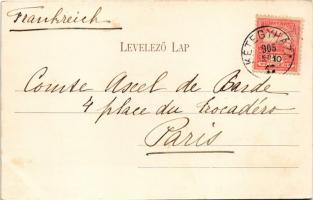 Frankreich
LEVELEZŐ LAP
KÉTEGYHÁZA
905
10
Comte Axel de Barde
4 place du Trocadéro
Paris